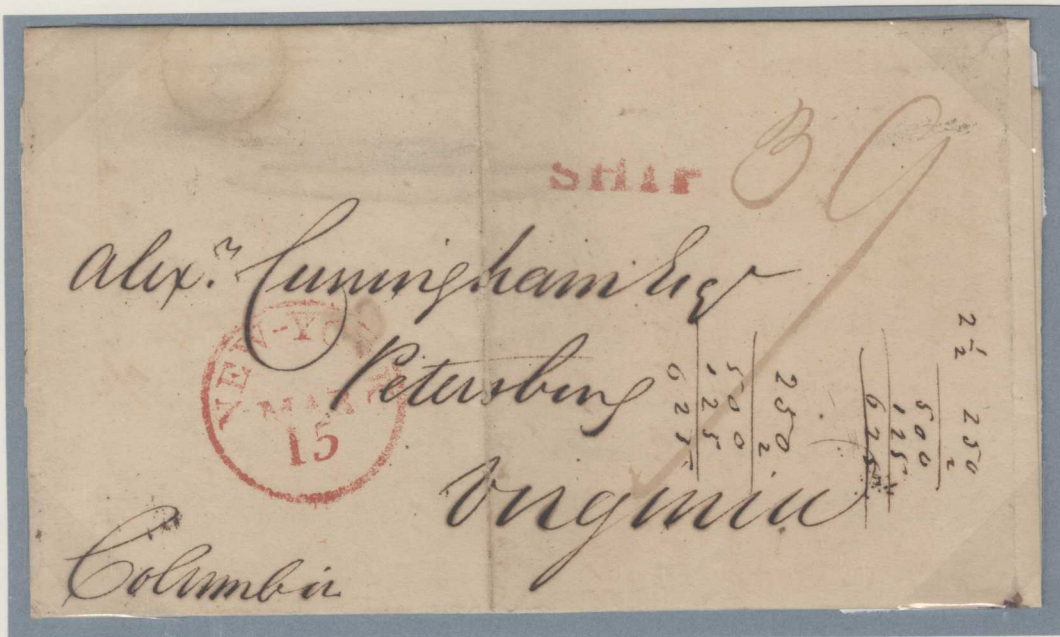 SHIP 39
Alexr. Cuningham Esqr
Petersburg
Virginia
Columbia
NEW-YORK
MAR
15
250
2
500
125
625
2½ 250
2
500
125
625